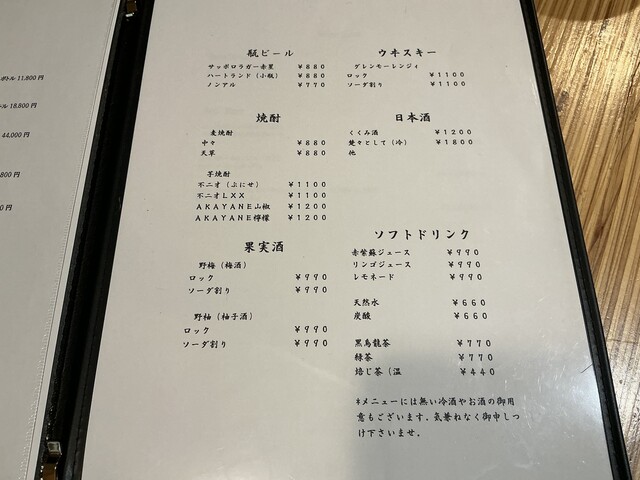 ボトル 11,800円
トル 18,800円
44,000円
,800円
0円
瓶ビール
サッポロラガー赤星 ¥880
ハートランド（小瓶） ¥880
ノンアル ¥770
焼酎
麦焼酎
中々 ¥880
天草 ¥880
芋焼酎
不二才（ぶにせ） ¥1100
不二才LXX ¥1100
AKAYANE山椒 ¥1200
AKAYANE檸檬 ¥1200
果実酒
野梅（梅酒）
ロック ¥990
ソーダ割り ¥990
野柚（柚子酒）
ロック ¥990
ソーダ割り ¥990
ウヰスキー
グレンモーレンジィ
ロック ¥1100
ソーダ割り ¥1100
日本酒
くくみ酒 ¥1200
楚々として（冷） ¥1800
他
ソフトドリンク
赤紫蘇ジュース ¥990
リンゴジュース ¥990
レモネード ¥990
天然水 ¥660
炭酸 ¥660
黒烏龍茶 ¥770
緑茶 ¥770
焙じ茶（温 ¥440
*メニューには無い冷酒やお酒の御用
意もございます。気兼ねなく御申しつ
け下さいませ。